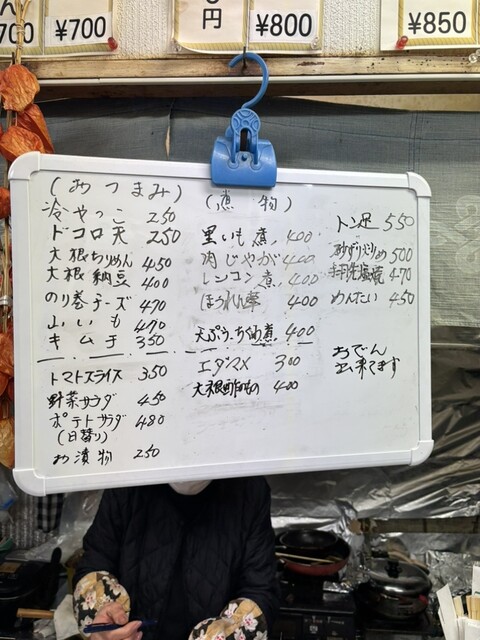 ん
700
¥700
円
¥800
¥850
(おつまみ)
冷やっこ 250
ドコロ天 250
大根ちりめん 450
大根納豆 400
のり巻チーズ 470
山いも 470
キムチ 350
トマトスライス 350
野菜サラダ 450
ポテトサラダ 480
(日替り)
お漬物 250
(煮物)
里いも煮. 400
肉じゃが 400
レンコン煮. 400
ほうれん草 400
天ぷら.ちくわ煮. 400
エダマメ 300
大根酢のもの 400
トン足 550
砂ずり炒め 500
手羽先塩焼 470
めんたい 450
おでん
出来てます